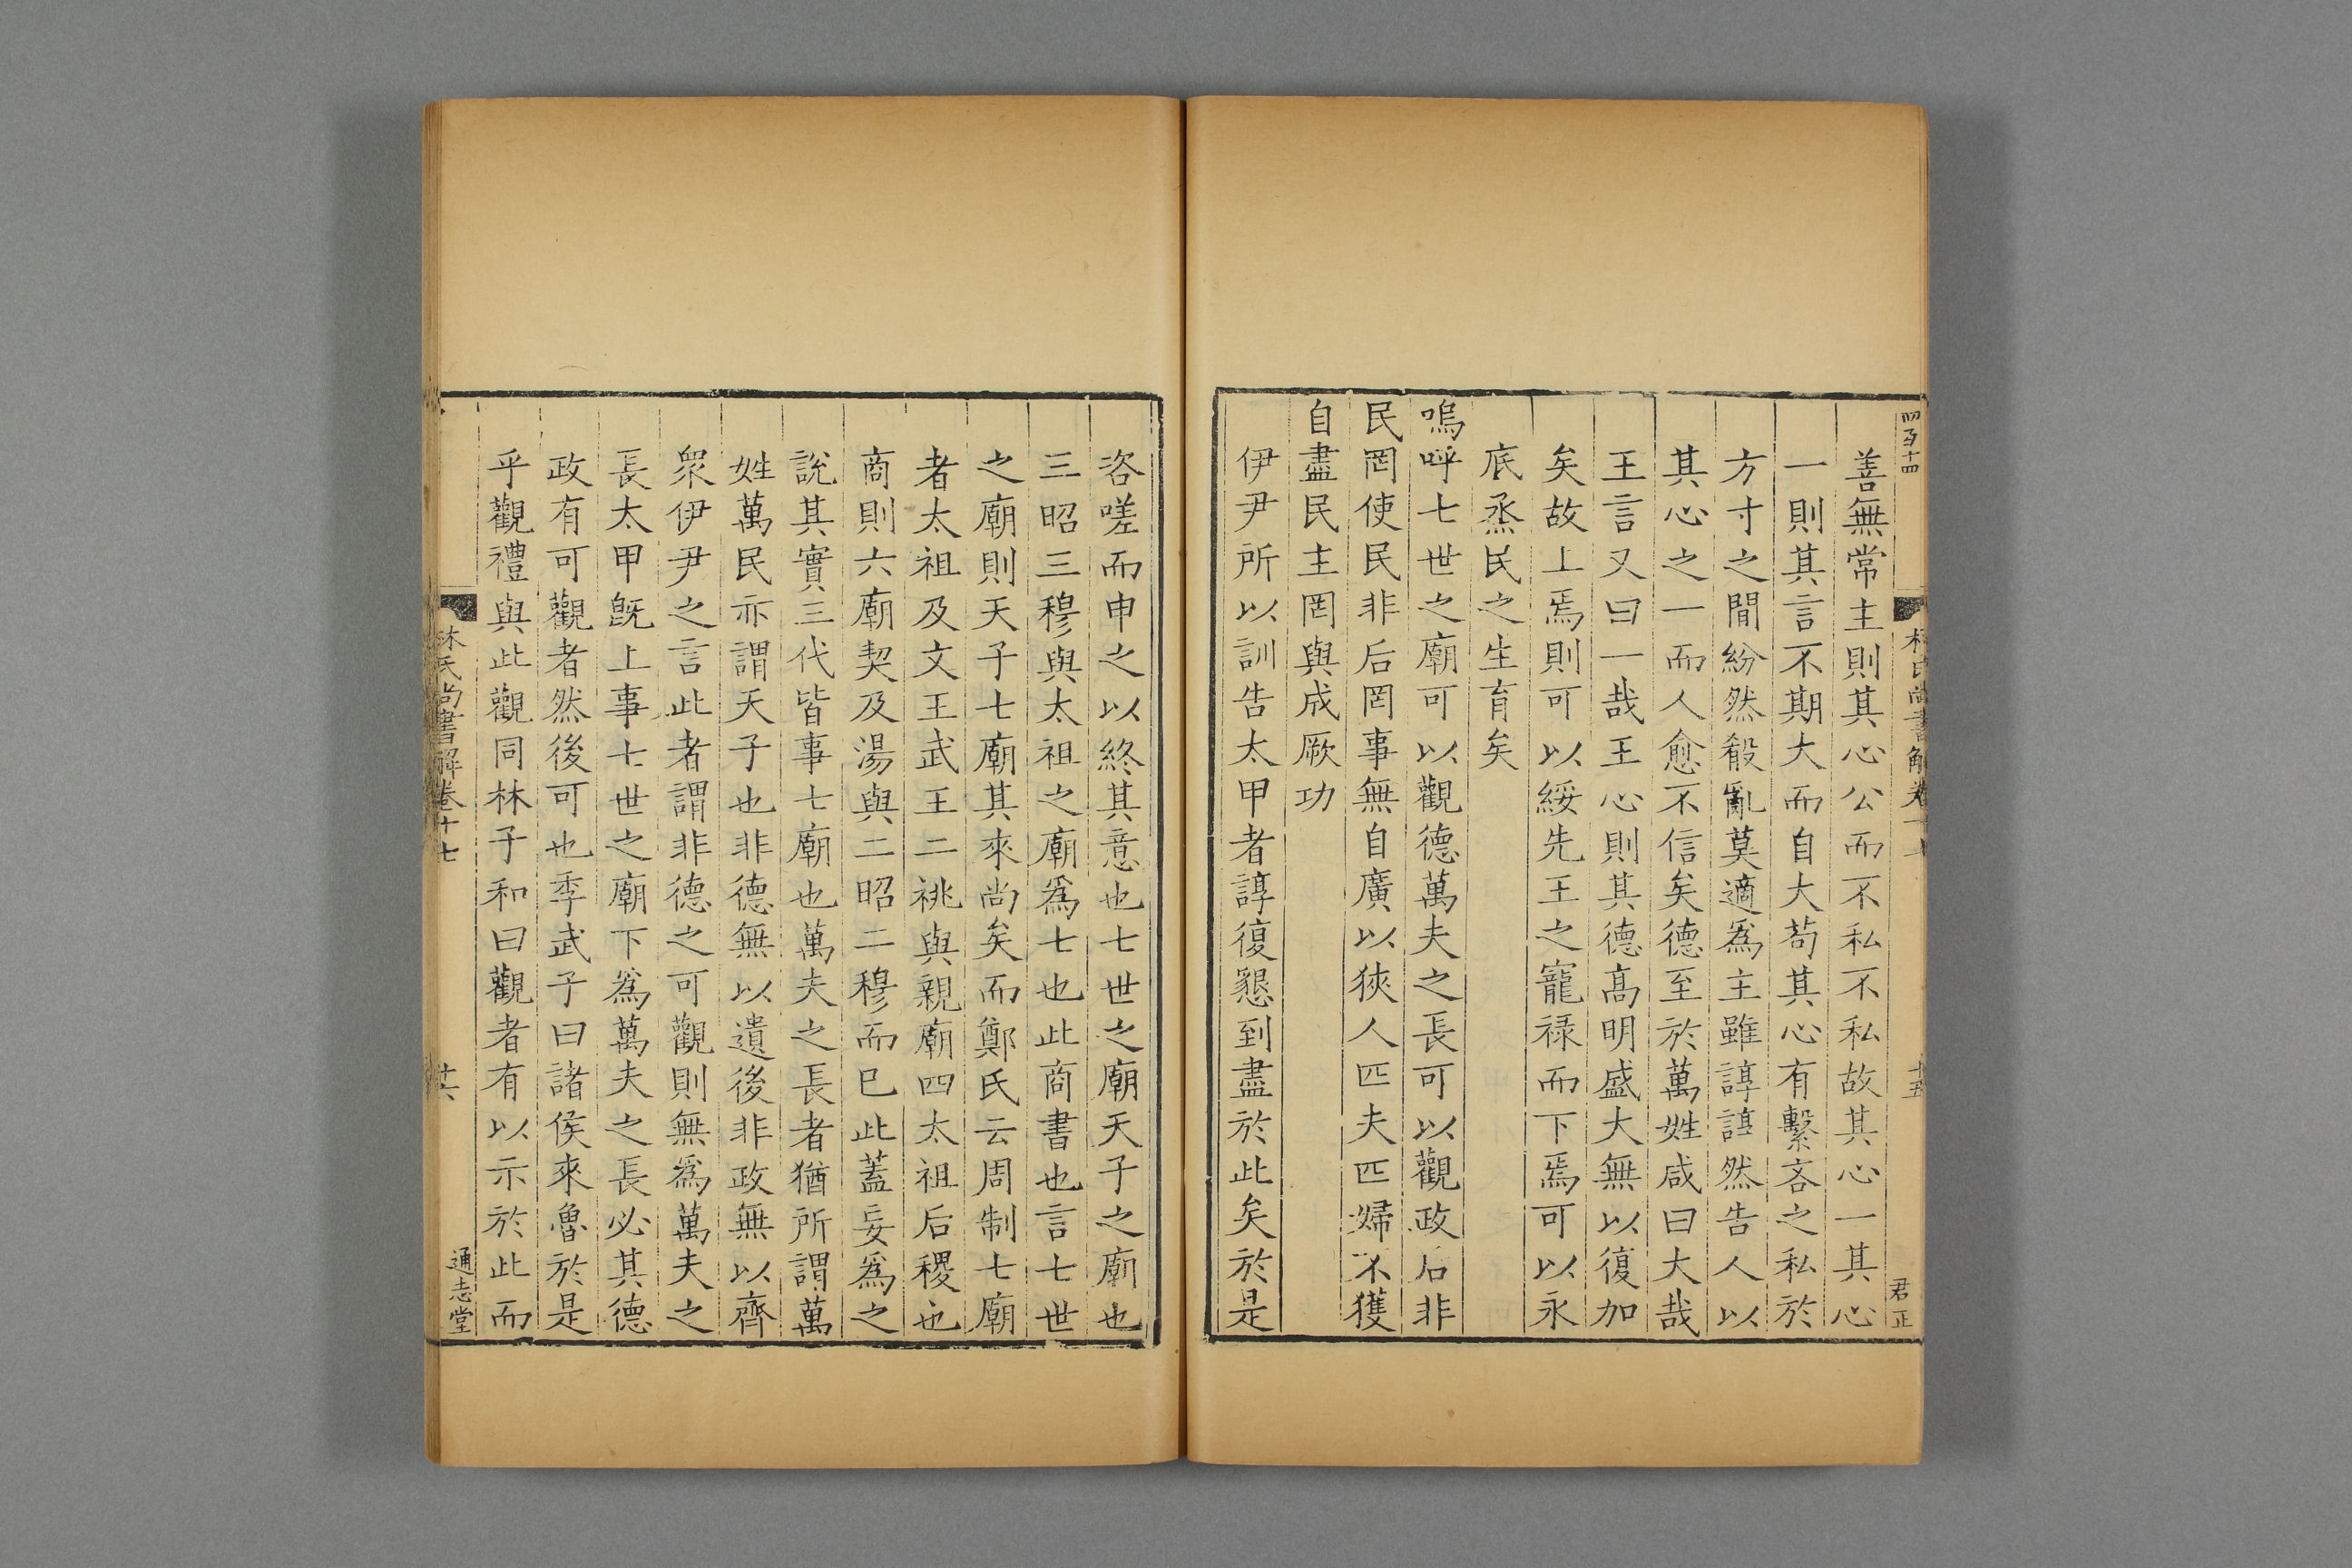 四百十四
林氏尚書解卷十七
十五
君正
善無常主則其心公而不私不私故其心一其心
一則其言不期大而自大苟其心有繫吝之私於
方寸之間紛然殽亂莫適為主雖諄諄然告人以
其心之一而人愈不信矣德至於萬姓咸曰大哉
王言又曰一哉王心則其德髙明盛大無以復加
矣故上焉則可以綏先王之寵禄而下焉可以永
底烝民之生育矣
嗚呼七世之廟可以觀德萬夫之長可以觀政后非
民罔使民非后罔事無自廣以狹人匹夫匹婦不獲
自盡民主罔與成厥功
伊尹所以訓告太甲者諄復懇到盡於此矣於是
咨嗟而申之以終其意也七世之廟天子之廟也
三昭三穆與太祖之廟爲七也此商書也言七世
之廟則天子七廟其來尚矣而鄭氏云周制七廟
者太祖及文王武王二祧與親廟四太祖后稷也
商則六廟契及湯與二昭二穆而已此蓋妄爲之
說其實三代皆事七廟也萬夫之長者猶所謂萬
姓萬民亦謂天子也非德無以遺後非政無以齊
衆伊尹之言此者謂非德之可觀則無爲萬夫之
長太甲旣上事七世之廟下爲萬夫之長必其德
政有可觀者然後可也季武子曰諸侯來魯於是
乎觀禮與此觀同林子和曰觀者有以示於此而
林氏尚書解卷十七
十六
通志堂